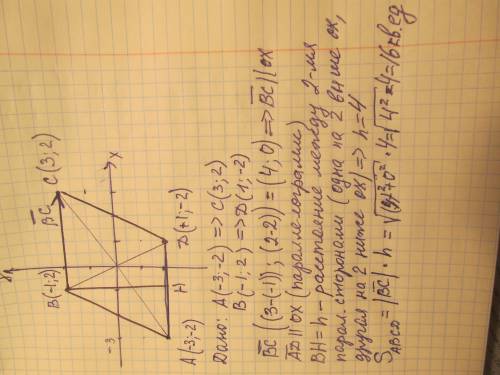 y
B(-1;2) BC C(3;2)
-3 x
A(-3;-2) H D(+1;-2)
Дано: A(-3;-2) => C(3;2)
B(-1;2) => D(1;-2)
BC ((3-(-1)); (2-2)) = (4; 0) => BC || ox
AD || ox (параллелограмм)
BH = h – расстояние между 2-мя
парал. сторонами (одна на 2 выше ох,
другая на 2 ниже ох) => h = 4
S ABCD = |BC| · h = · 4 = √4² * 4 = 16 кв. ед